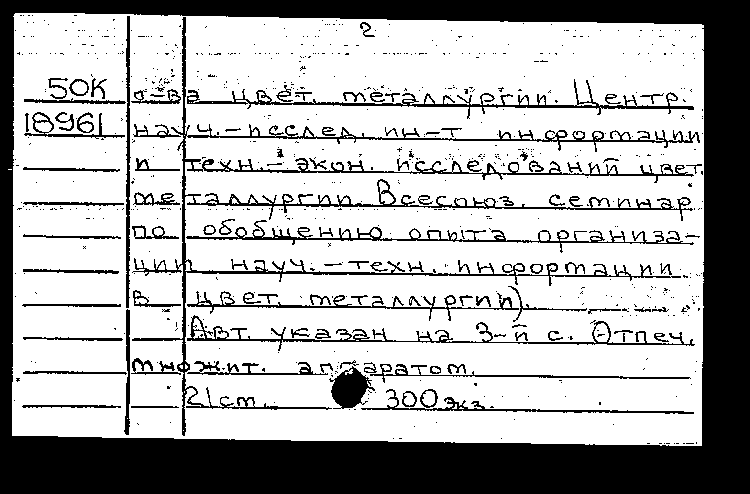 2
50К о-ва цвет. металлургии. Центр.
18961 науч.-исслед. ин-т информации
и техн.-экон. исследований цвет.
металлургии. Всесоюз. семинар
по обобщению опыта организа-
ции науч.-техн. информации
в цвет. металлургии).
Авт. указан на 3-й с. Отпеч.
множит. аппаратом.
21 см. 300 экз.